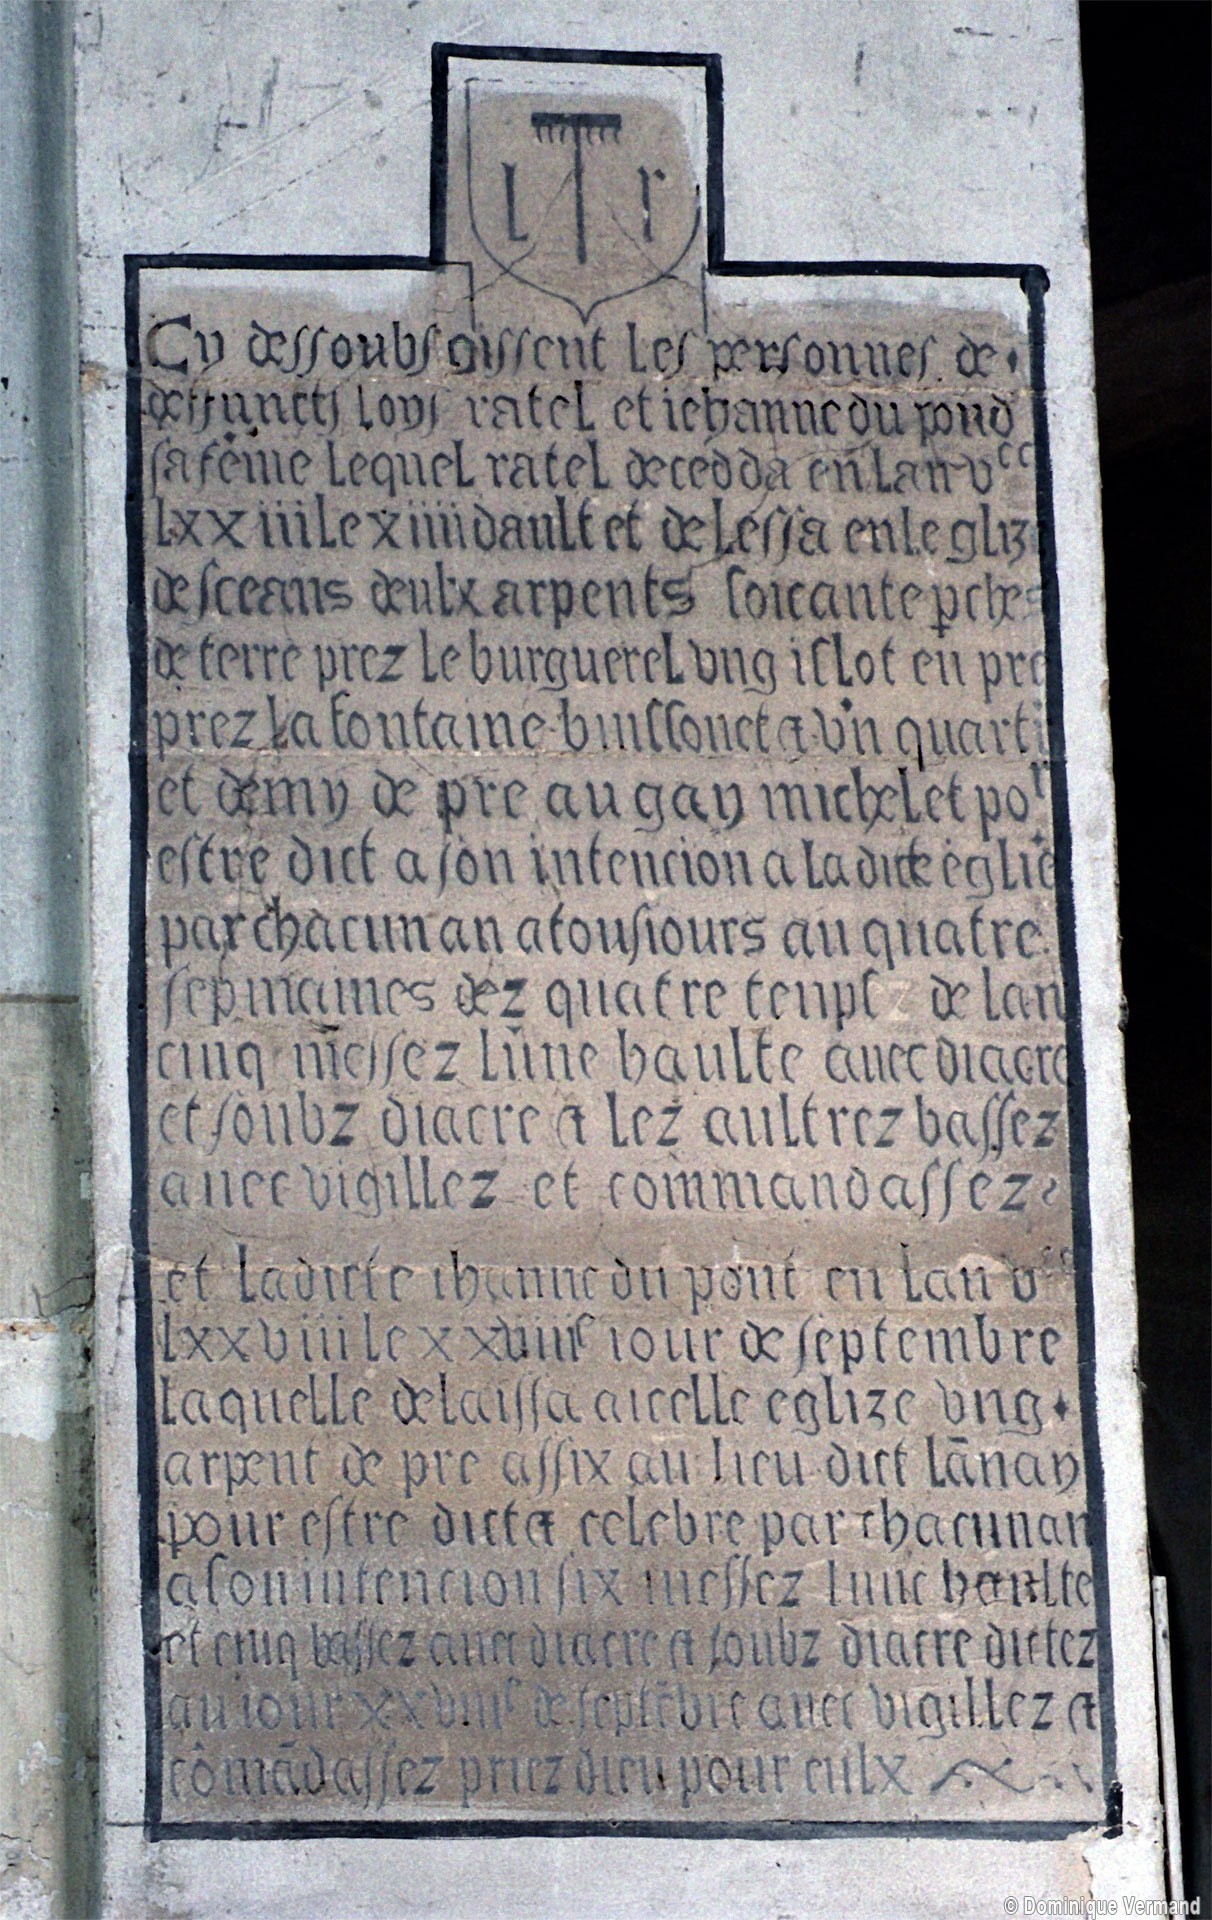 l r
Cy dessoubs gissent les personnes de
deffuncts loys ratel et iehanne du pond
sa fēme lequel ratel decedda en lan vcc
lxxiiii le xiiii dault et delessa en leglize
de sceans deulx arpents soicante pches
de terre prez le burguerel vng islot en pre
prez la fontaine buissonet & vn quarti
et demy de pre au gay michelet por
estre dict a son intencion a la dicte eglise
par chacun an a tousiours au quatre
sepmaines dez quatre tempsz de lan
cinq messez lune haulte auec diacre
et soubz diacre & lez aultrez bassez
auec vigillez et commandassez
et ladicte ihanne du pont en lan vcc
lxxviii le xxviiie iour de septembre
laquelle delaissa a icelle eglize vng
arpent de pre assix au lieu dict lānay
pour estre dict & celebre par chacun an
a son intencion six messez lune haulte
et cinq bassez auec diacre & soubz diacre dictez
au iour xxviiie de septēbre auec vigillez &
cōmādassez priez dieu pour eulx
© Dominique Vermand